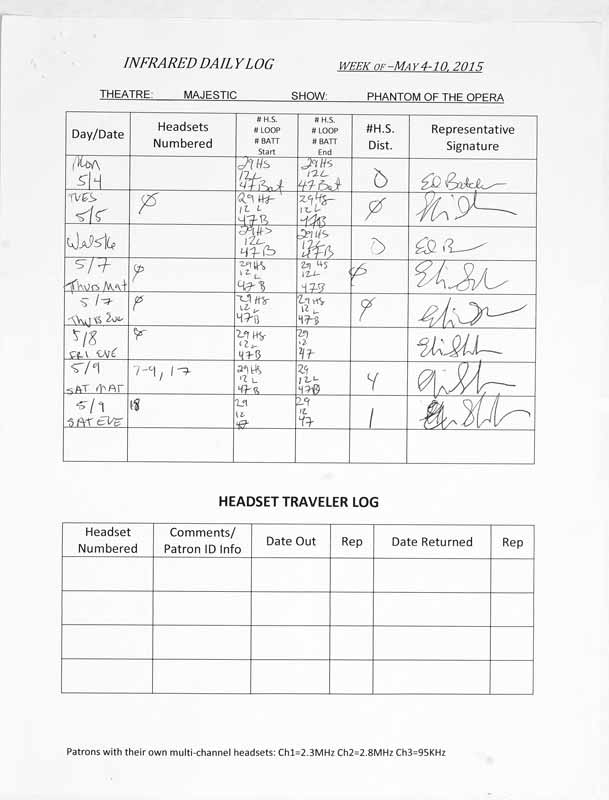 INFRARED DAILY LOG WEEK OF –MAY 4-10, 2015
THEATRE: MAJESTIC SHOW: PHANTOM OF THE OPERA
Day/Date Headsets Numbered # H.S. # LOOP # BATT Start # H.S. # LOOP # BATT End #H.S. Dist. Representative Signature
Mon 5/4 29HS 12L 47Bat 29HS 12L 47Bat 0
TUES 5/5 Ø 29HS 12L 47B 29HS 12L 47B Ø
29HS 12L 47B 29HS 12L 47B 0
5/7 Thurs Mat Ø 29HS 12L 47B 29HS 12L 47B Ø
5/7 Thurs Eve Ø 29HS 12L 47B 29HS 12L 47B Ø
5/8 FRI EVE Ø 29HS 12L 47B 29 12 47
5/9 SAT MAT 7-9, 17 29HS 12L 47B 29 12L 47B 4
5/9 SAT EVE 18 29 12 47 29 12 47 1
HEADSET TRAVELER LOG
Headset Numbered Comments/ Patron ID Info Date Out Rep Date Returned Rep
Patrons with their own multi-channel headsets: Ch1=2.3MHz Ch2=2.8MHz Ch3=95KHz